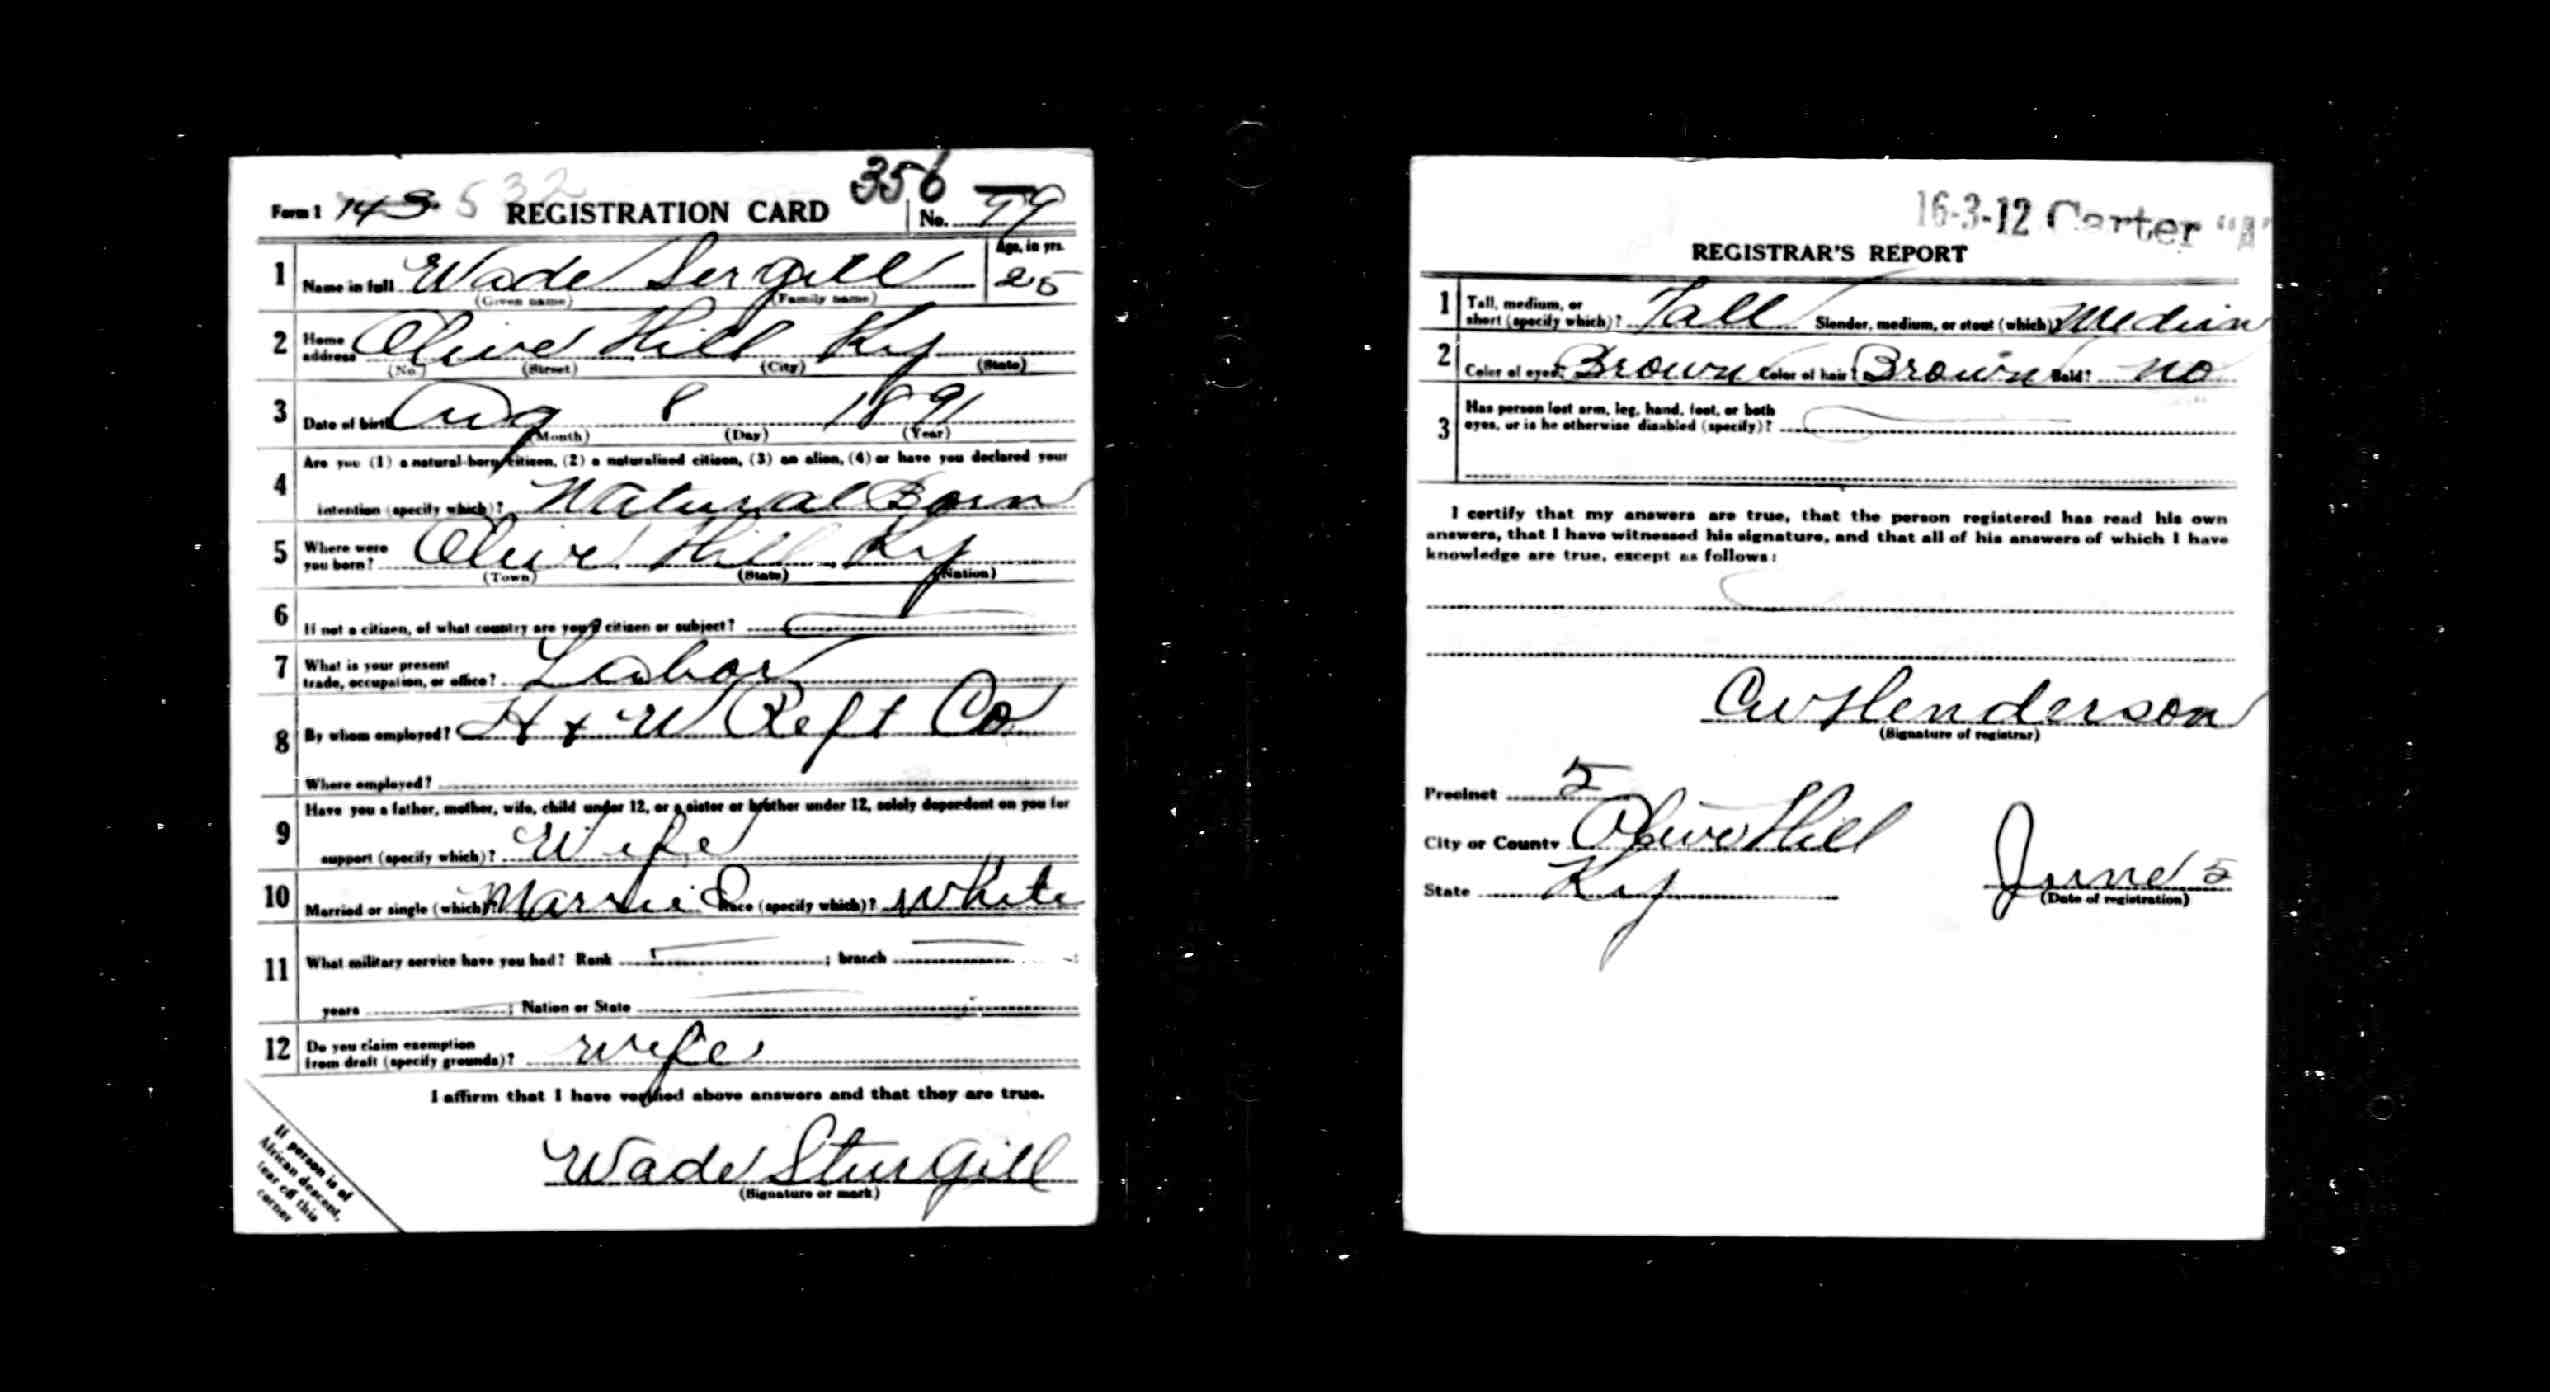 356
Form 1 143 532 REGISTRATION CARD No. 79
1 Name in full Wade Sergill Age, in yrs. 25
(Given name) (Family name)
2 Home address Olive Hill Ky
(No.) (Street) (City) (State)
3 Date of birth Aug 8 1891
(Month) (Day) (Year)
4 Are you (1) a natural-born citizen, (2) a naturalized citizen, (3) an alien, (4) or have you declared your
intention (specify which)? Natural Born
5 Where were you born? Olive Hill Ky
(Town) (State) (Nation)
6 If not a citizen, of what country are you a citizen or subject?
7 What is your present trade, occupation, or office? Labor
8 By whom employed? H & W Reft Co
Where employed?
9 Have you a father, mother, wife, child under 12, or a sister or brother under 12, solely dependent on you for
support (specify which)? Wife
10 Married or single (which)? Married Race (specify which)? White
11 What military service have you had? Rank ; branch ;
years ; Nation or State
12 Do you claim exemption from draft (specify grounds)? wife
I affirm that I have verified above answers and that they are true.
Wade Sturgill
(Signature or mark)
If person is of
African descent,
tear off this
corner
16-3-12 Carter "A"
REGISTRAR'S REPORT
1 Tall, medium, or short (specify which)? Tall Slender, medium, or stout (which)? Medium
2 Color of eyes? Brown Color of hair? Brown Bald? no
3 Has person lost arm, leg, hand, foot, or both
eyes, or is he otherwise disabled (specify)?
I certify that my answers are true, that the person registered has read his own
answers, that I have witnessed his signature, and that all of his answers of which I have
knowledge are true, except as follows:
CW Henderson
(Signature of registrar)
Precinct 5
City or County Olive Hill
State Ky June 5
(Date of registration)